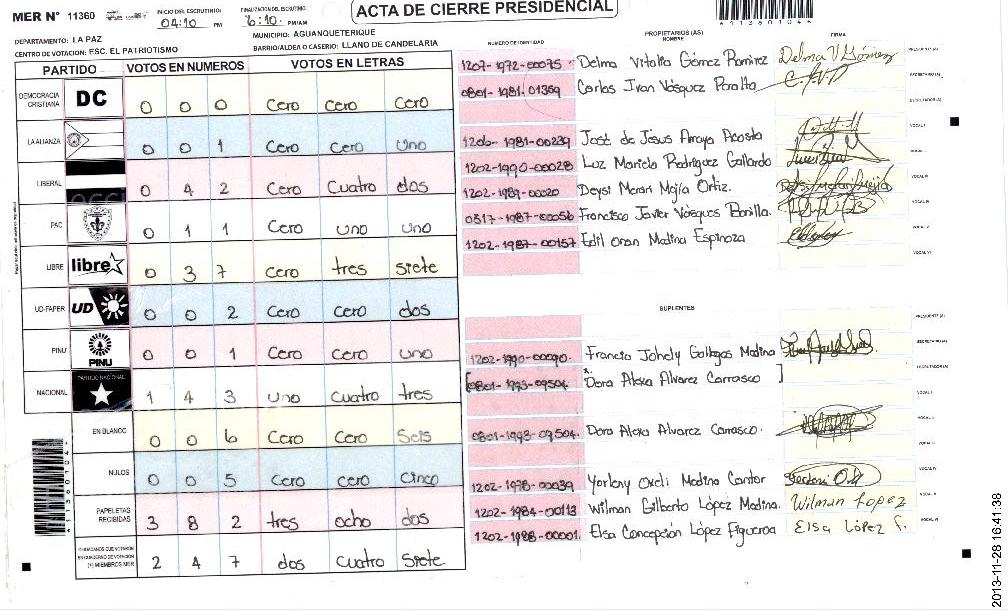 MER Nº 11360
INICIO DEL ESCRUTINIO: 04:10 PM
FINALIZACION DEL ESCRUTINIO: 6:10 PM/AM
ACTA DE CIERRE PRESIDENCIAL
411360104
DEPARTAMENTO: LA PAZ
MUNICIPIO: AGUANQUETERIQUE
CENTRO DE VOTACION: ESC. EL PATRIOTISMO
BARRIO/ALDEA O CASERIO: LLANO DE CANDELARIA
PARTIDO VOTOS EN NUMEROS VOTOS EN LETRAS
DEMOCRACIA CRISTIANA DC 0 0 0 Cero Cero Cero
LA ALIANZA 0 0 1 Cero Cero Uno
LIBERAL 0 4 2 Cero Cuatro dos
PAC 0 1 1 Cero uno uno
LIBRE libre 0 3 7 Cero tres siete
UD-FAPER UD 0 0 2 Cero Cero dos
PINU PINU 0 0 1 Cero Cero uno
NACIONAL PARTIDO NACIONAL 1 4 3 Uno Cuatro tres
EN BLANCO 0 0 6 Cero Cero Seis
NULOS 0 0 5 Cero cero Cinco
PAPELETAS RECIBIDAS 3 8 2 tres ocho dos
CIUDADANOS QUE VOTARON EN CUADERNO DE VOTACION (+) MIEMBROS MER 2 4 7 dos Cuatro Siete
411360104
NUMERO DE IDENTIDAD PROPIETARIOS (AS) NOMBRE FIRMA
1207-1972-00075 Delma Vitalia Gómez Ramirez Delma V Gómez PRESIDENTE (A)
0801-1981-01369 Carlos Ivan Vásquez Peralta SECRETARIO (A)
ESCRUTADOR (A)
1206-1981-00239 José de Jesus Arroyo Acosta VOCAL I
1202-1990-00028 Luz Mariela Rodríguez Gallardo VOCAL II
1202-1989-00020 Deysi Merari Mejía Ortiz. VOCAL III
0317-1987-00056 Francisco Javier Vásques Bonilla. VOCAL IV
1202-1987-00157 Edil Onan Medina Espinoza VOCAL V
VOCAL VI
SUPLENTES
PRESIDENTE (A)
1202-1990-00090. Francis Johely Gallegos Medina SECRETARIO (A)
[0801-1993-09504. Dora Alexa Alvarez Carrasco ] ESCRUTADOR (A)
VOCAL I
0801-1993-09504. Dora Alexa Alvarez Carrasco. VOCAL II
VOCAL III
1202-1978-00039 Yorleny Oxeli Medina Cantor VOCAL IV
1202-1984-00113 Wilman Gilberto López Medina. Wilman Lopez VOCAL V
1202-1988-00001. Elsa Concepción López Figueroa Elsa López F. VOCAL VI
2013-11-28 16:41:38